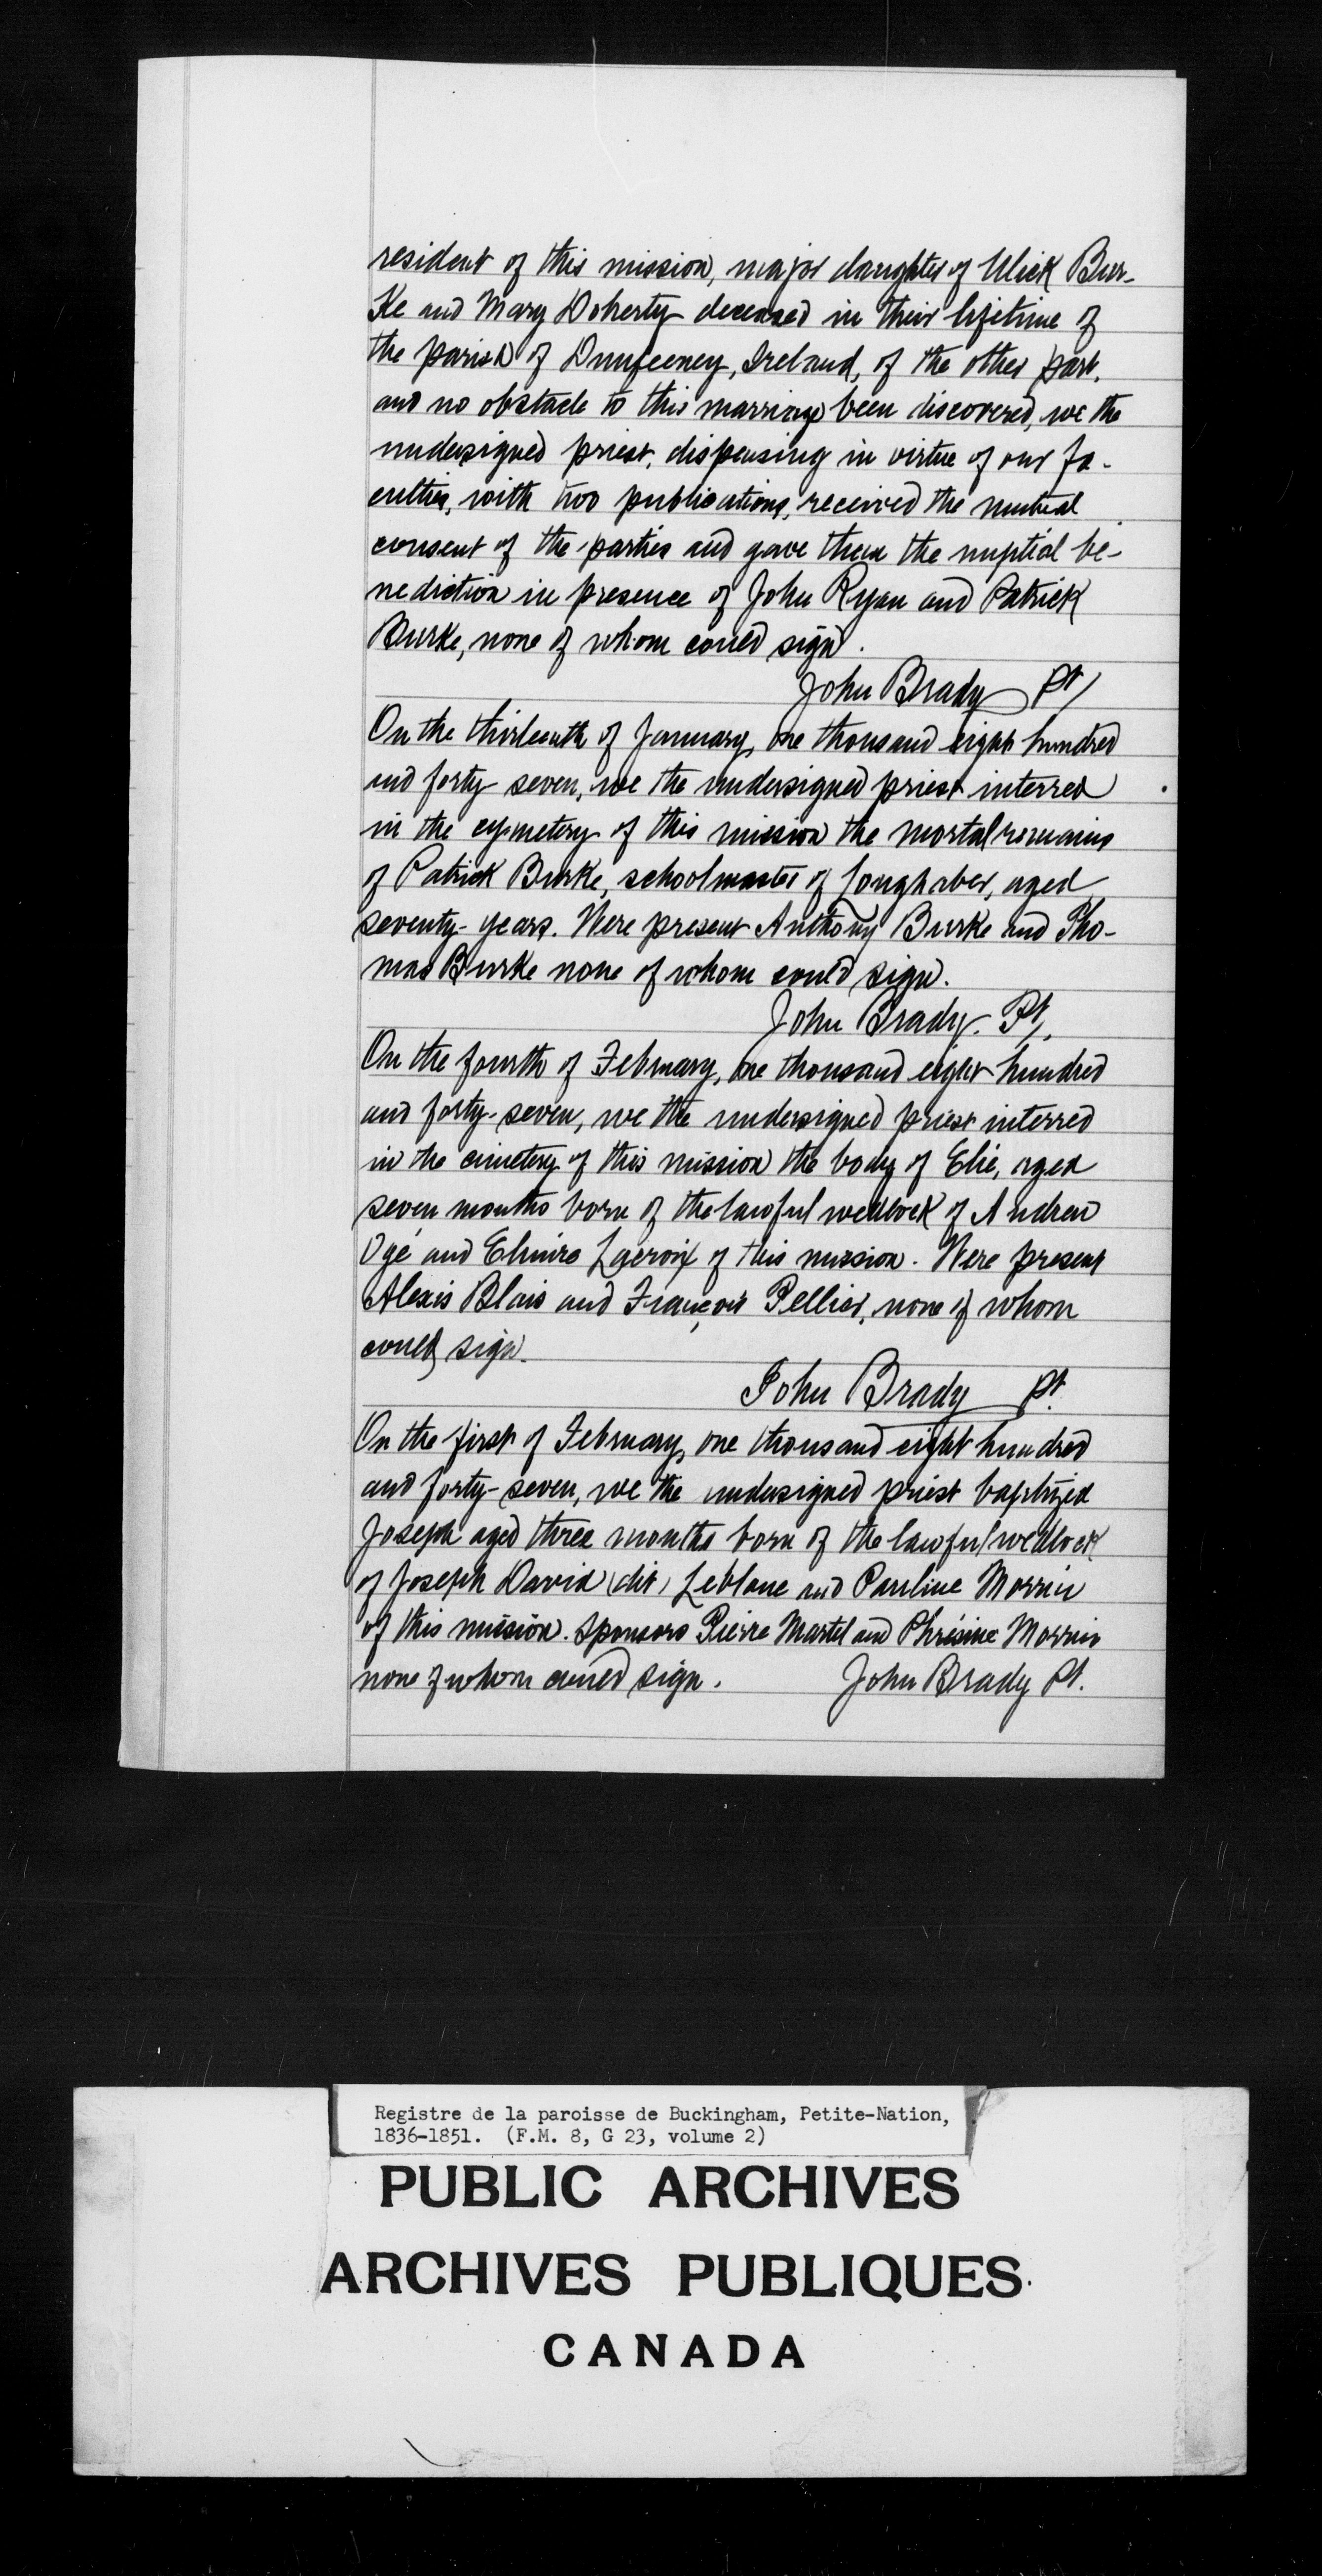 resident of this mission, major daughter of Ulick Bur-
ke and Mary Doherty deceased in their lifetime of
the parish of Dunfeeney, Ireland, of the other part,
and no obstacle to this marriage been discovered, we the
undersigned priest, dispensing in virtue of our fa-
culties, with two publications, received the mutual
consent of the parties and gave them the nuptial be-
nediction in presence of John Ryan and Patrick
Burke, none of whom could sign.
John Brady Pt
On the thirteenth of January, one thousand eight hundred
and forty seven, we the undersigned priest interred
in the cymetery of this mission the mortal remains
of Patrick Burke, schoolmaster of Loughaber, aged
seventy years. Were present Anthony Burke and Tho-
mas Burke none of whom could sign.
John Brady. Pt.
On the fourth of February, one thousand eight hundred
and forty-seven, we the undersigned priest interred
in the cimetery of this mission the body of Elie, aged
seven months born of the lawful wedlock of Andrew
Ogé and Elmire Lacroix of this mission. Were present
Alexis Blais and François Pellier, none of whom
could sign.
John Brady Pt.
On the first of February, one thousand eight hundred
and forty-seven, we the undersigned priest baptized
Joseph aged three months born of the lawful wedlock
of Joseph David (dit) Leblanc and Pauline Morrin
of this mission. Sponsors Pierre Martel and Phrésine Morrin
none of whom could sign. John Brady Pt.
Registre de la paroisse de Buckingham, Petite-Nation,
1836-1851. (F.M. 8, G 23, volume 2)
PUBLIC ARCHIVES
ARCHIVES PUBLIQUES
CANADA